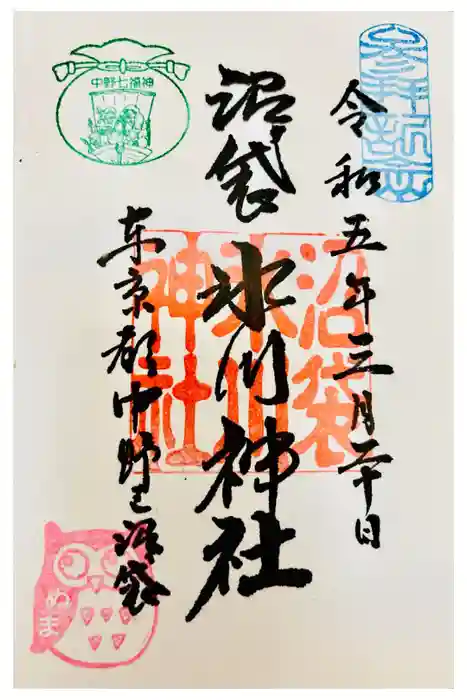 参拝記念
令和五年三月二十日
沼袋
氷川神社
東京都中野区沼袋
沼袋
氷川
神社
中野七福神
ぬま